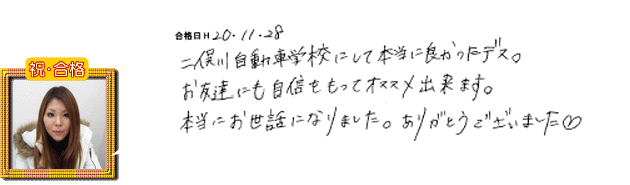 合格日H20.11.28
二俣川自動車学校にして本当に良かったデス。
お友達にも自信をもってオススメ出来ます。
本当にお世話になりました。ありがとうございました♡
祝・合格